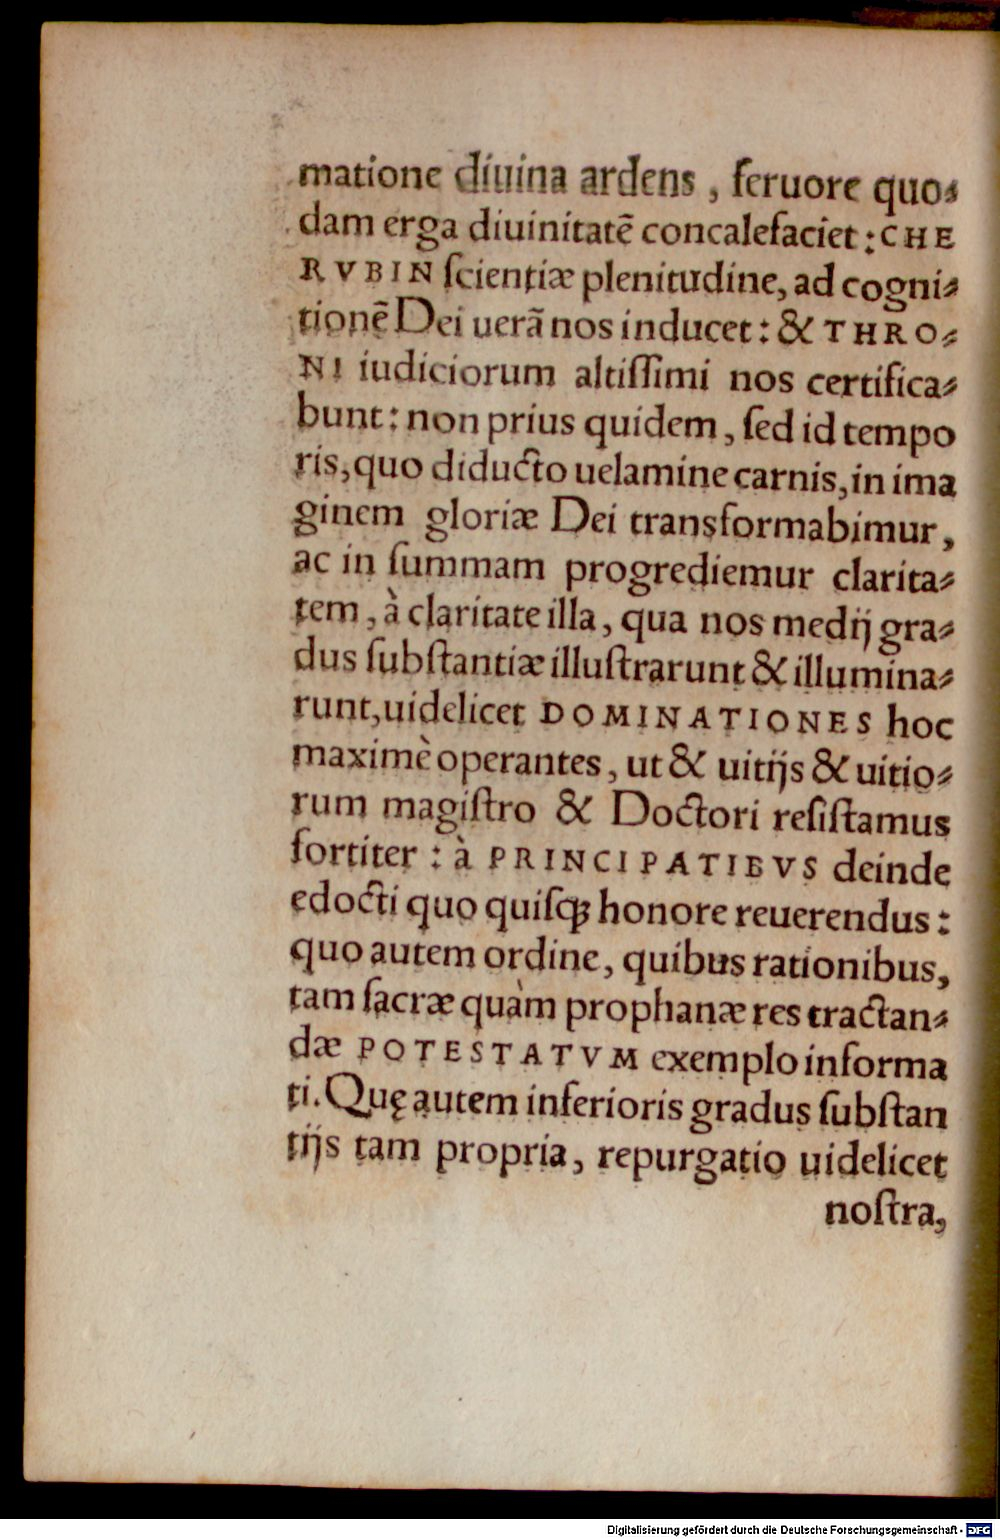 matione diuina ardens, feruore quo⸗
dam erga diuinitatē concalefaciet: CHE
RVBIN ſcientiæ plenitudine, ad cogni⸗
tionē Dei uerā nos inducet: & THRO⸗
NI iudiciorum altiſſimi nos certifica⸗
bunt: non prius quidem, ſed id tempo
ris, quo diducto uelamine carnis, in ima
ginem gloriæ Dei transformabimur,
ac in ſummam progrediemur clarita⸗
tem, à claritate illa, qua nos medij gra⸗
dus ſubſtantiæ illuſtrarunt & illumina⸗
runt, uidelicet DOMINATIONES hoc
maximè operantes, ut & uitijs & uitio⸗
rum magiſtro & Doctori reſiſtamus
fortiter: à PRINCIPATIBVS deinde
edocti quo quiſq; honore reuerendus:
quo autem ordine, quibus rationibus,
tam ſacræ quàm prophanæ res tractan⸗
dæ POTESTATVM exemplo informa
ti. Quę autem inferioris gradus ſubſtan
tijs tam propria, repurgatio uidelicet
noſtra,
Digitalisierung gefördert durch die Deutsche Forschungsgemeinschaft - DFG